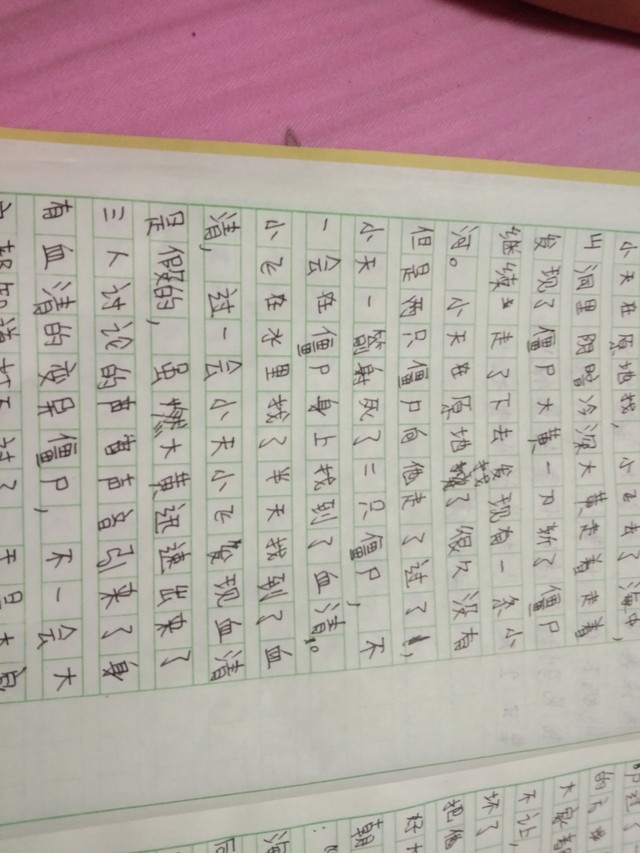 小天在原地找，小飞去了海中，
山洞里阴暗冷漠大黄走着走着
发现了僵尸大黄一刀斩了僵尸
继续走了下去发现有一条小
河。小天在原地找了很久没有
但是两只僵尸向他走了过了，
小天一箭射死了二只僵尸，不
一会在僵尸身上找到了血清。
小飞在水里找了半天找到了血
清，过一会小天小飞发现血清
是假的，虽燃大黄迅速出来了
三人讨论的声音引来了身
有血清的变异僵尸，不一会大
不让，
坏了
把他
朝